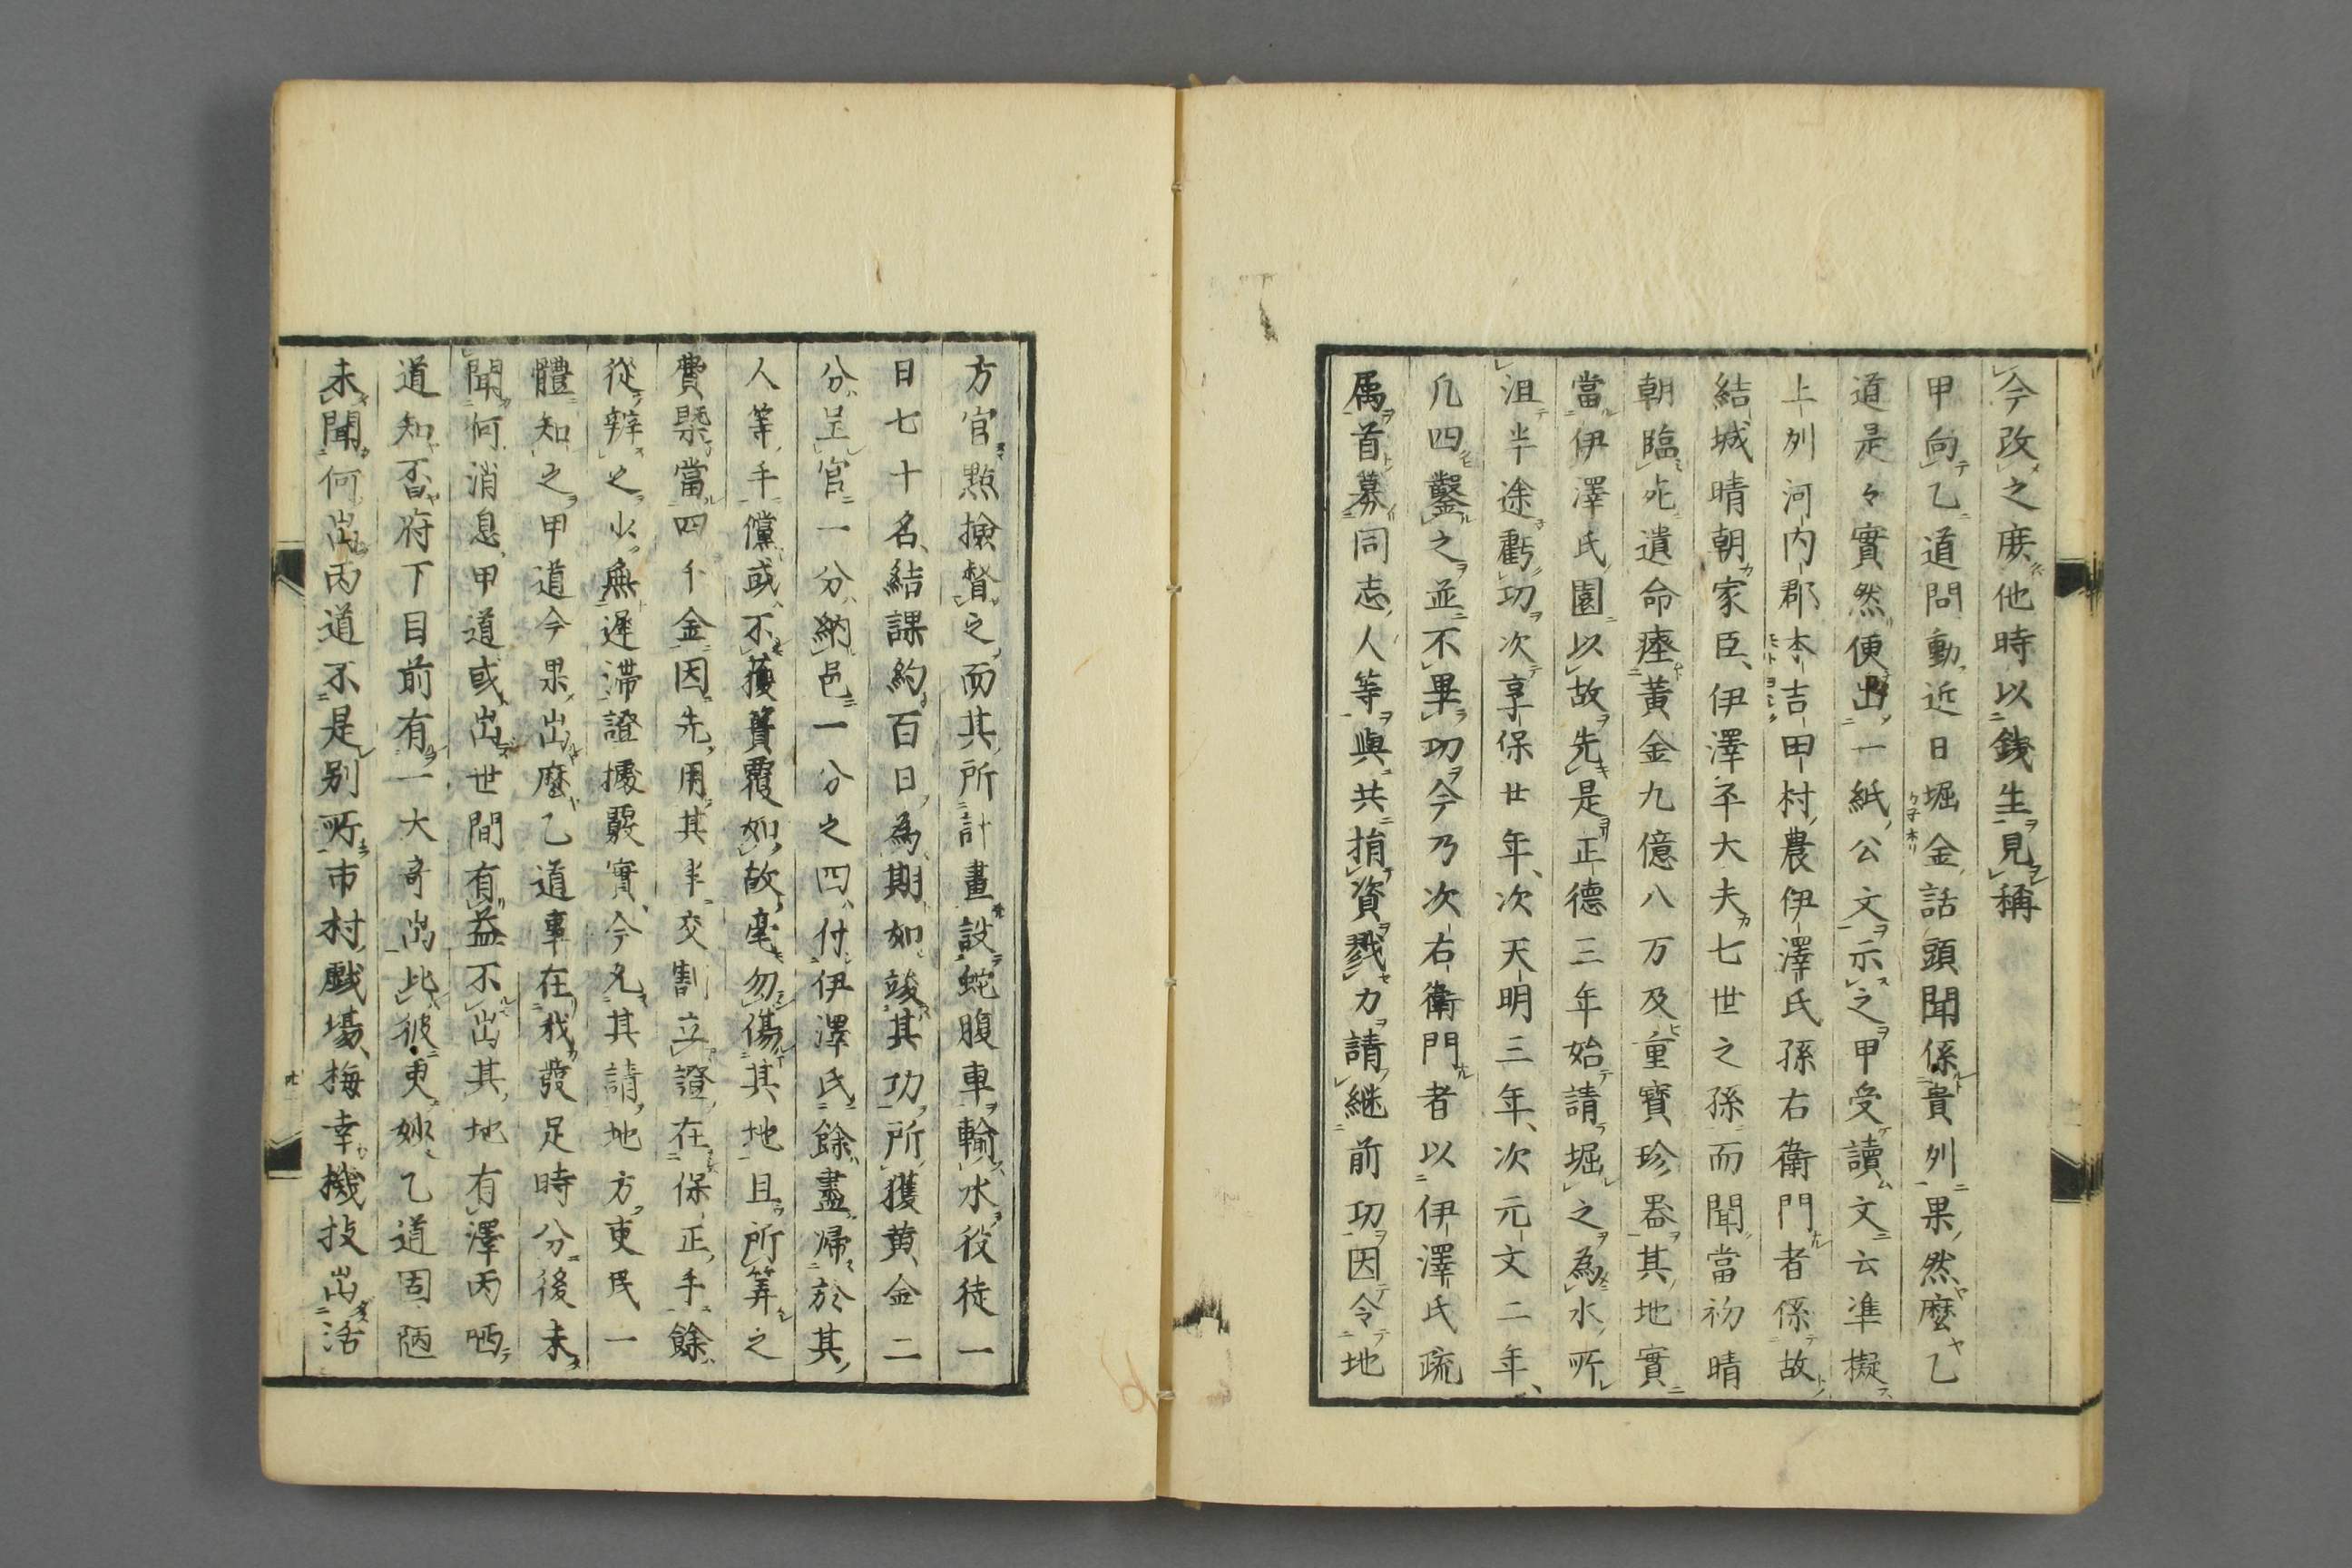 今改之庶他時以錢生見稱
甲向乙道問動近日堀金話頭聞係貴列果然麼乙
道是々實然便出一紙公文示之甲受讀文云準擬
上列河内郡本吉田村農伊澤氏孫右衛門者係故
結城晴朝家臣伊澤平大夫七世之孫而聞當初晴
朝臨死遺命瘞黃金九億八万及重寶珍器其地實
當伊澤氏園以故先是正德三年始請堀之為水所
沮半途虧功次享保廿年次天明三年次元文二年
凡四鑿之並不畢功今乃次右衛門者以伊澤氏疏
属首募同志人等與共捐資戮力請継前功因令地
方官點撿督之而其所計畫設蛇腹車輸水役徒一
日七十名結課約百日為期如竣其功所獲黄金二
分呈官一分納邑一分之四付伊澤氏餘盡帰於其
人等手儻或不獲簣覆如故毫勿傷其地且所筭之
費槩當四千金因先用其半交割立證在保正手餘
從辨之以無遲滞證攄覈實今允其請地方吏民一
體知之甲道今果出麼乙道事在我發足時分後未
聞何消息甲道或出世間有益不出其地有澤丙哂
道知否府下目前有一大奇出比彼更妙乙道固陋
未聞何出丙道不是别所市村戯場梅幸機技出活